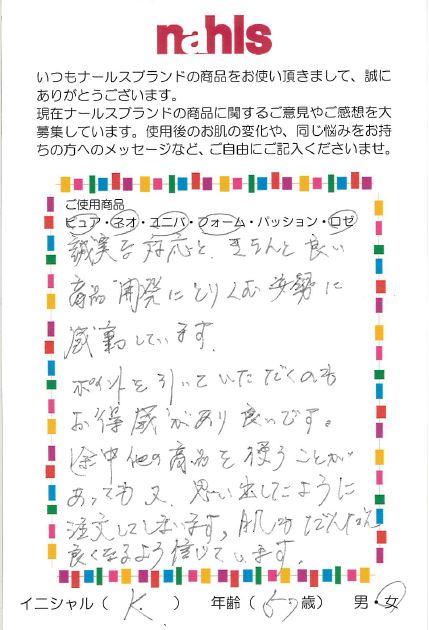 nahls
いつもナールスブランドの商品をお使い頂きまして、誠に
ありがとうございます。
現在ナールスブランドの商品に関するご意見やご感想を大
募集しています。使用後のお肌の変化や、同じ悩みをお持
ちの方へのメッセージなど、ご自由にご記入くださいませ。
ご使用商品
ピュア・ネオ・ユニバ・フォーム・パッション・ロゼ
誠実な対応と、きちんと良い
商品開発にとりくむ姿勢に
感動しています。
ポイントを引いていただくのも
お得感があり良いです。
途中他の商品を使うことが
あっても又、思い出したように
注文してしまいます。肌もだんだん
良くなるよう信じています。
イニシャル（ K. ） 年齢（ 歳） 男・女